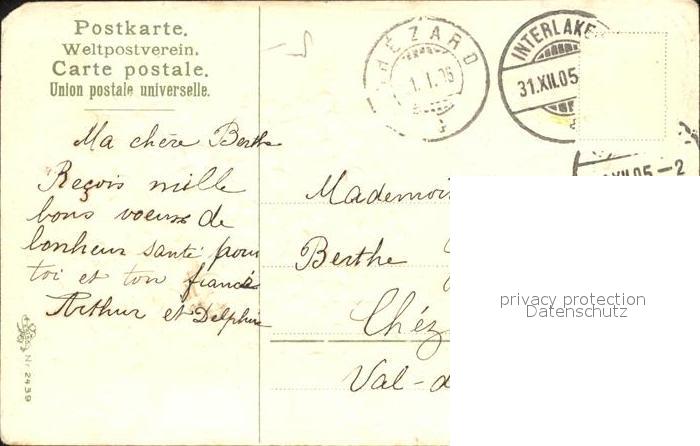 Postkarte.
Weltpostverein.
Carte postale.
Union postale universelle.
HÉZARD
1.1.06
INTERLAKE
31.XII.05
XII.05-2
Ma chère Berthe
Reçois mille
bons voeux de
bonheur santé pour
toi et ton fiancé
Arthur et Delphine
Mademoi
Berthe
Chéz
Val-d
privacy protection
Datenschutz
Nr 2439